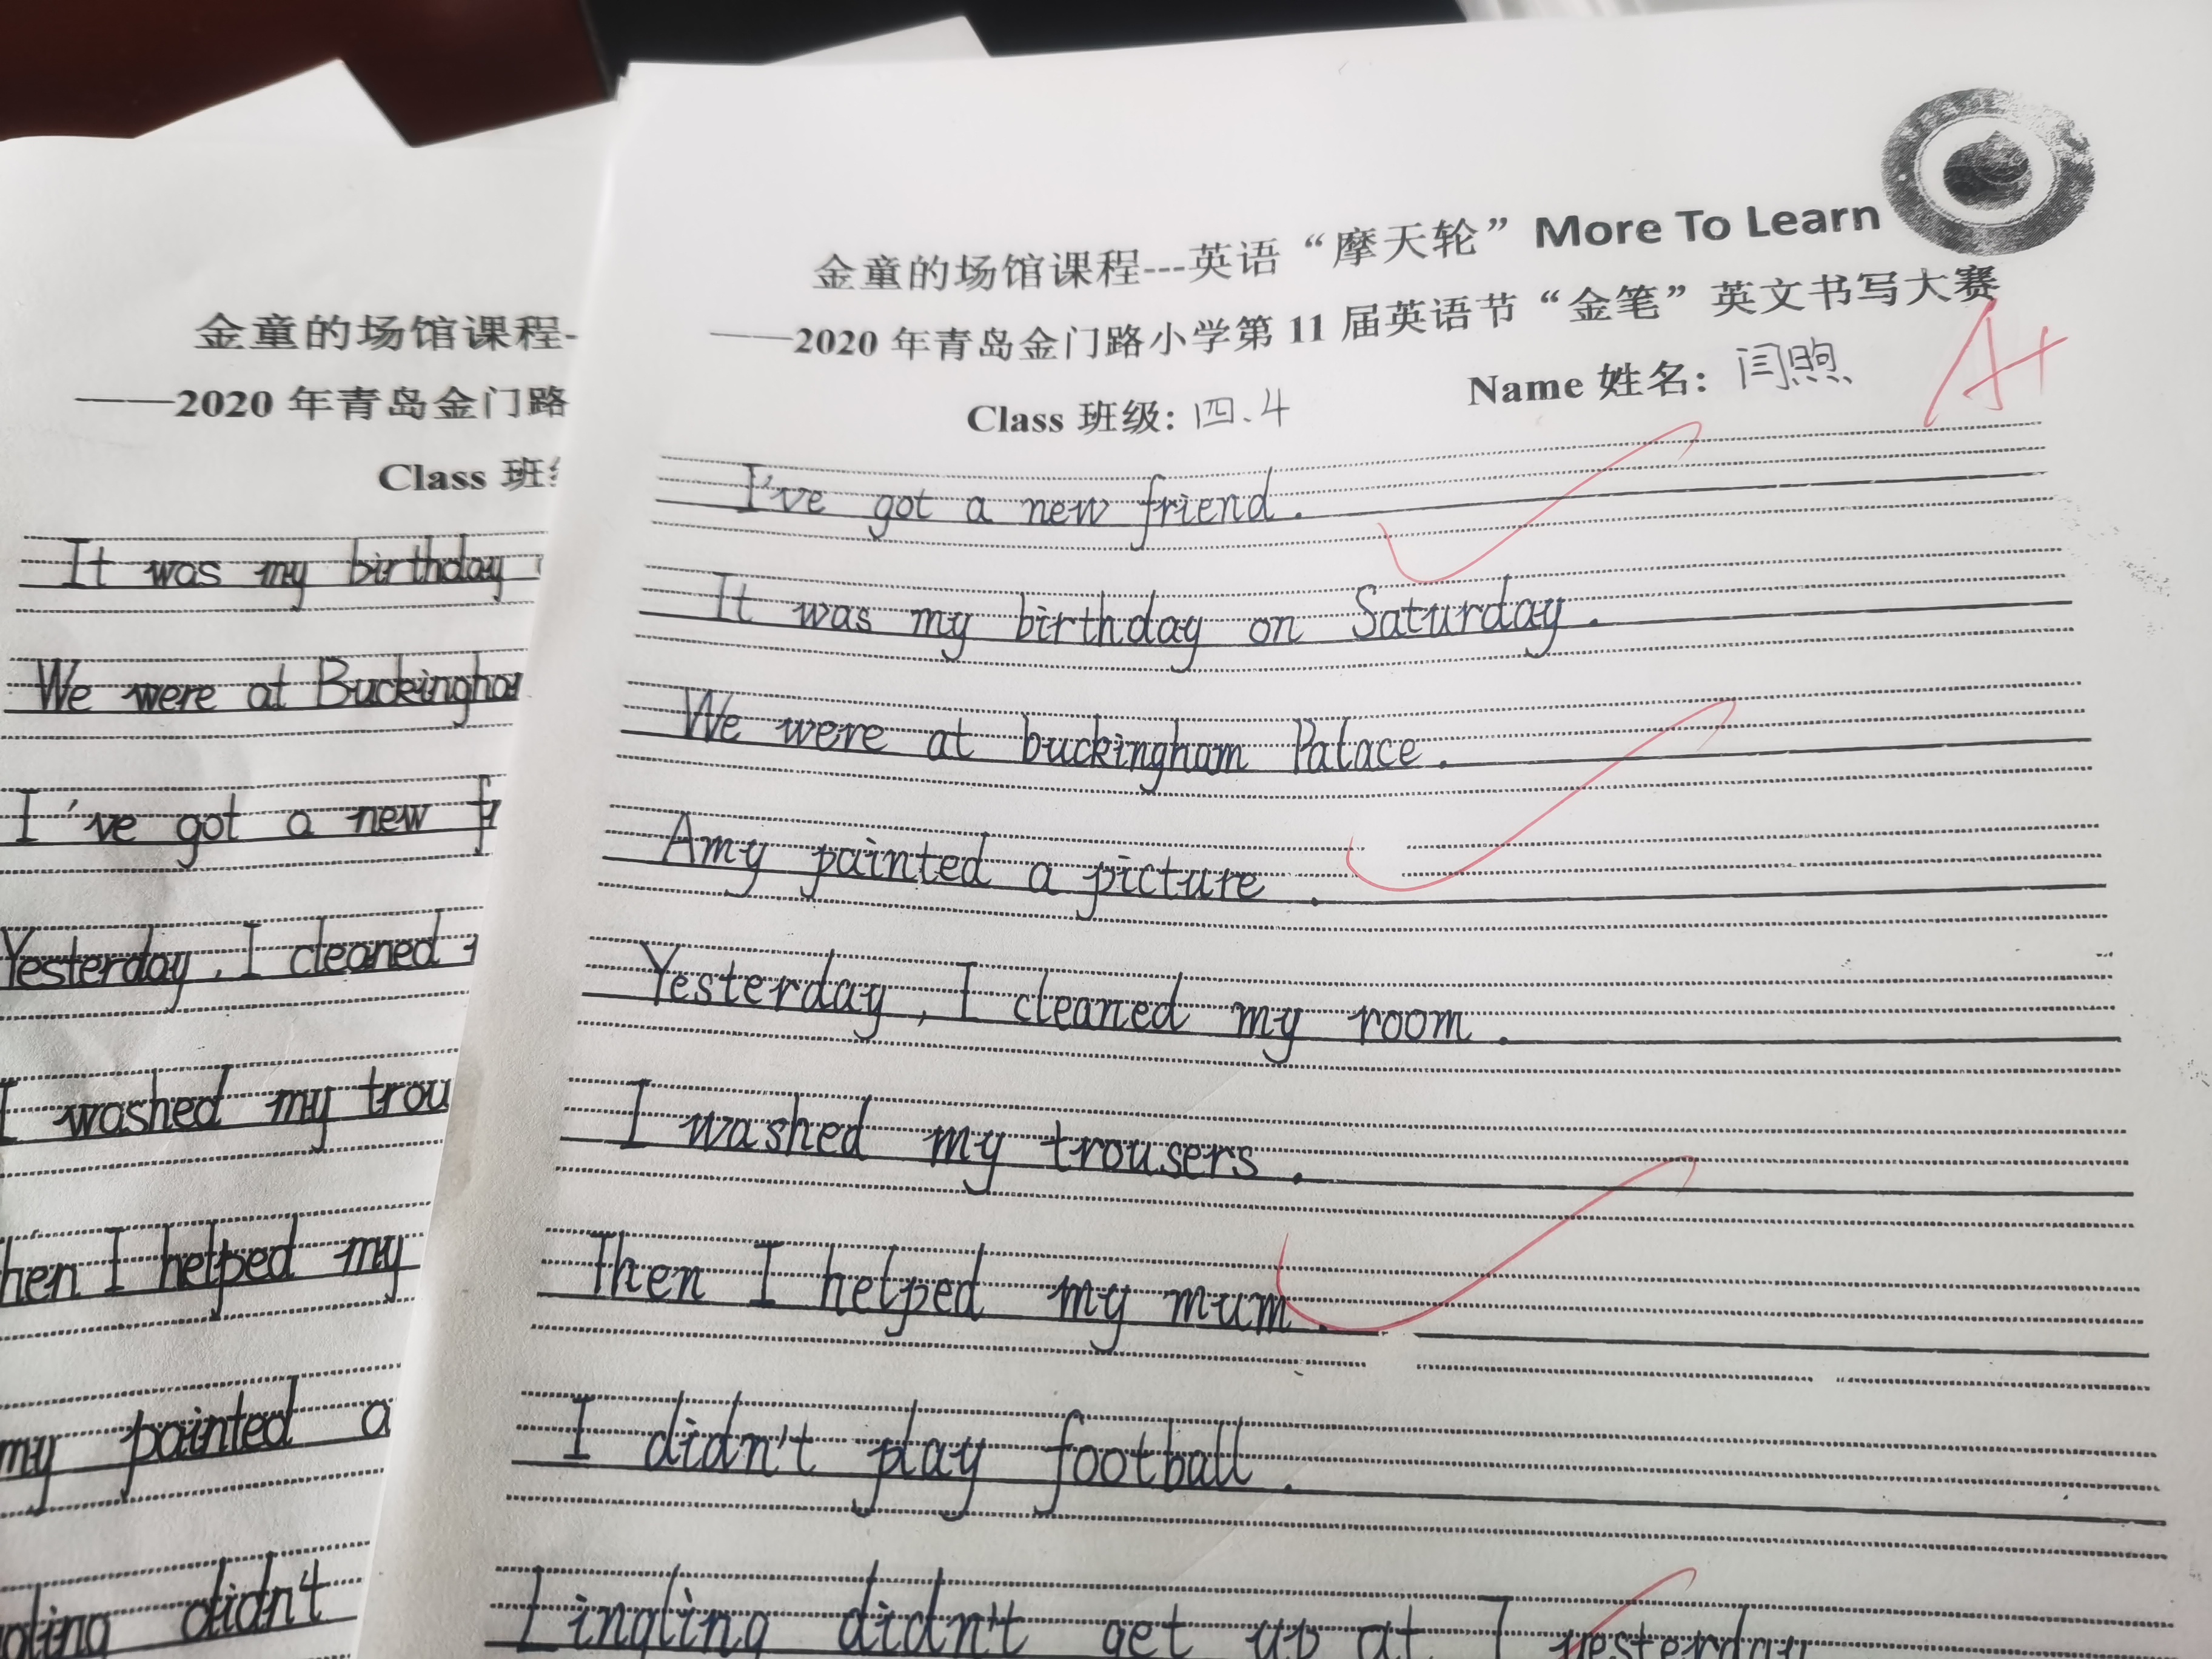 金童的场馆课程-
——2020 年青岛金门路
Class 班级
It was my birthday
We were at
I've got a new
Yesterday, I cleaned
I washed my trou
hen I helped my
my painted a
gling didn't
金童的场馆课程---英语“摩天轮”More To Learn
——2020 年青岛金门路小学第 11 届英语节“金笔”英文书写大赛
Class 班级: 四.4 Name 姓名: 闫煦
A+
I've got a new friend.
It was my birthday on Saturday.
We were at buckingham Palace.
Amy painted a picture.
Yesterday, I cleaned my room.
I washed my trousers.
Then I helped my mum.
I didn't play football.
Lingling didn't get up at 7 yesterday